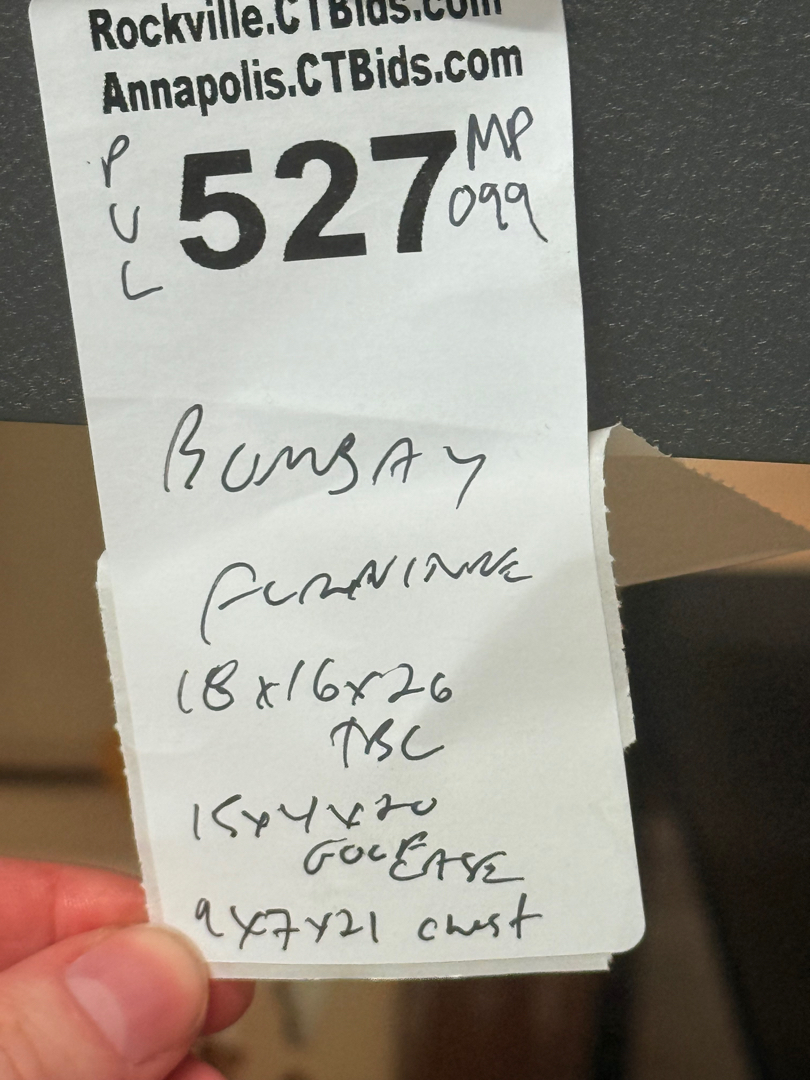 Rockville.CTBids.com
Annapolis.CTBids.com
PUL
527
MP
099
BOMBAY
18x16x26
TBC
15x4x20
9x7x21 chest